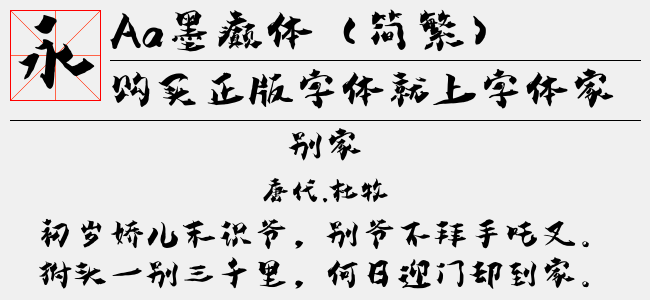 永
Aa墨癫体（简繁）
购买正版字体就上字体家
别家
唐代.杜牧
初岁娇儿未识爷，别爷不拜手吒叉。
拊头一别三千里，何日迎门却到家。